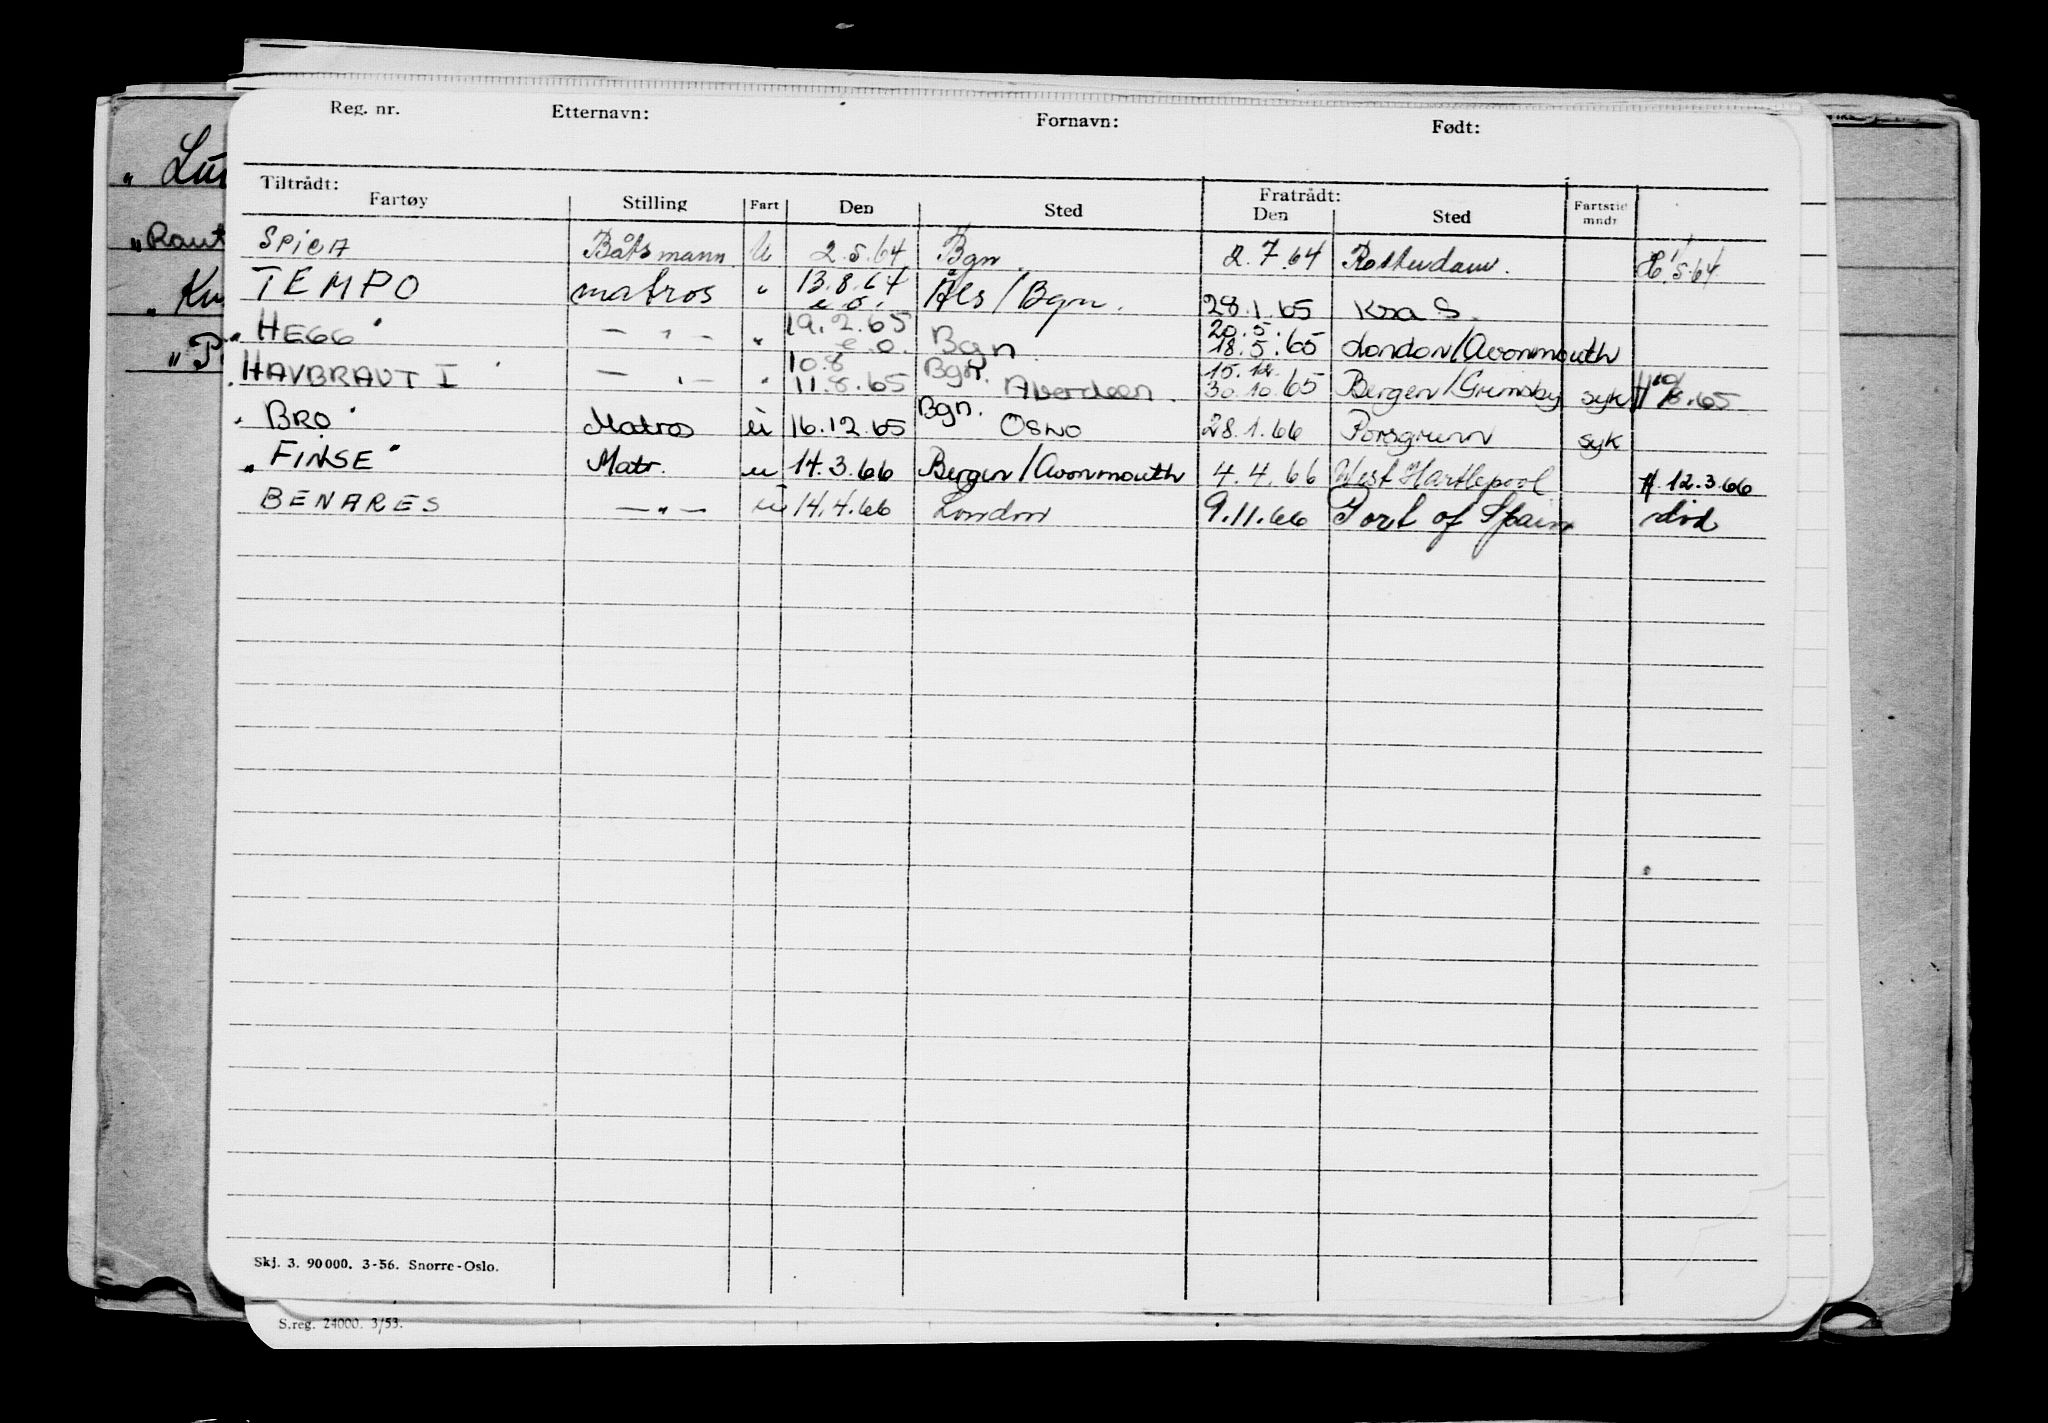 Reg. nr. Etternavn: Fornavn: Født:
Tiltrådt: Fratrådt:
Fartøy Stilling Fart Den Sted Den Sted Fartstid mndr
SPICA Båtsmann U 2.5.64 Bgn. 2.7.64 Rotterdam. 5.64
TEMPO matros " 13.8.64 e.o. Åls / Bgn. 28.1.65 Krsa S.
"HEGG" — " — " 19.2.65 e.o. Bgn. 20.5. 18.5.65 London/Avonmouth
"HAVBRAUT I" — " — " 10.8 11.8.65 Bgn. Aberdeen. 15.12. 30.10.65 Bergen/Grimsby syk 8.65
"BRO" Matros u 16.12.65 Bgn. Oslo 28.1.66 Porsgrunn syk
"FINSE" Matr. u 14.3.66 Bergen/Avonmouth 4.4.66 West Hartlepool A. 12.3.66
BENARES — " — u 14.4.66 London 9.11.66 Port of Spain død
Skj. 3. 90000. 3-56. Snorre-Oslo.
S.reg. 24000. 3/53.